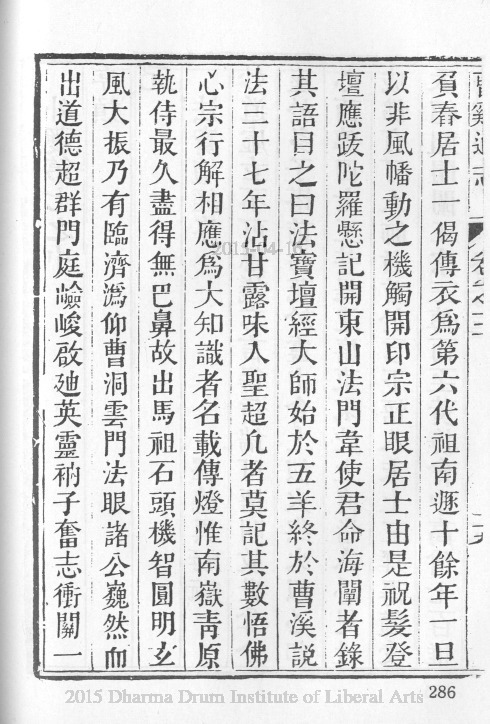 曹溪通志
卷之三
負舂居士一偈傳衣爲第六代祖南遯十餘年一旦
以非風幡動之機觸開印宗正眼居士由是祝髮登
壇應跋陀羅懸記開東山法門韋使君命海闡者錄
其語目之曰法寶壇經大師始於五羊終於曹溪説
法三十七年沾甘露味入聖超凢者莫記其數悟佛
心宗行解相應爲大知識者名載傳燈惟南嶽青原
執侍最久盡得無巴鼻故出馬祖石頭機智圓明玄
風大振乃有臨濟潙仰曹洞雲門法眼諸公巍然而
出道德超群門庭嶮峻啟廸英靈衲子奮志衝關一
2015-04-16
2015 Dharma Drum Institute of Liberal Arts
286